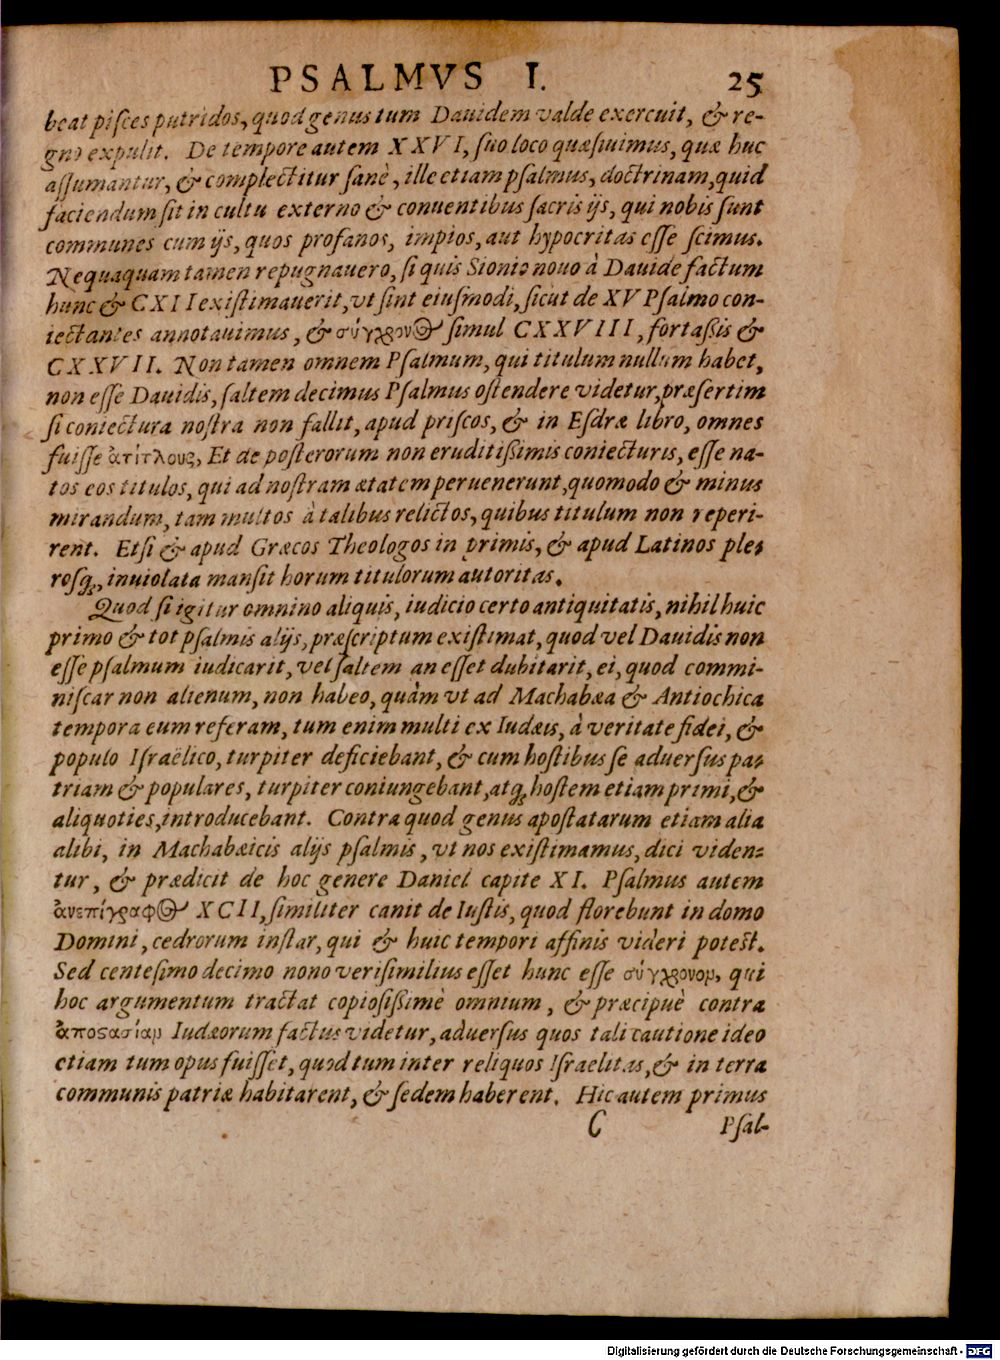 PSALMVS I. 25
beat piſces putridos, quod genus tum Dauidem valde exercuit, & re-
gno expulit. De tempore autem XXVI, ſuo loco quæſiuimus, quæ huc
aſſumantur, & complectitur ſanè, ille etiam pſalmus, doctrinam, quid
faciendum ſit in cultu externo & conuentibus ſacris ijs, qui nobis ſunt
communes cum ijs, quos profanos, impios, aut hypocritas eſſe ſcimus.
Nequaquam tamen repugnauero, ſi quis Sionio nouo à Dauide factum
hunc & CXII exiſtimauerit, vt ſint eiuſmodi, ſicut de XV Pſalmo con-
iectantes annotauimus, & σύγχρονος ſimul CXXVIII, fortaßis &
CXXVII. Non tamen omnem Pſalmum, qui titulum nullum habet,
non eſſe Dauidis, ſaltem decimus Pſalmus oſtendere videtur, præſertim
ſi coniectura noſtra non fallit, apud priſcos, & in Eſdræ libro, omnes
fuiſſe ἀτίτλους, Et de poſterorum non eruditißimis coniecturis, eſſe na-
tos eos titulos, qui ad noſtram ætatem peruenerunt, quomodo & minus
mirandum, tam multos à talibus relictos, quibus titulum non reperi-
rent. Etſi & apud Græcos Theologos in primis, & apud Latinos ple-
roſq́, inuiolata manſit horum titulorum autoritas.
Quod ſi igitur omnino aliquis, iudicio certo antiquitatis, nihil huic
primo & tot pſalmis alijs, præſcriptum exiſtimat, quod vel Dauidis non
eſſe pſalmum iudicarit, vel ſaltem an eſſet dubitarit, ei, quod commi-
niſcar non alienum, non habeo, quàm vt ad Machabæa & Antiochica
tempora eum referam, tum enim multi ex Iudæis, à veritate fidei, &
populo Iſraëlico, turpiter deficiebant, & cum hoſtibus ſe aduerſus pa-
triam & populares, turpiter coniungebant, atq́ hoſtem etiam primi, &
aliquoties, introducebant. Contra quod genus apoſtatarum etiam alia
alibi, in Machabæicis alijs pſalmis, vt nos exiſtimamus, dici viden-
tur, & prædicit de hoc genere Daniel capite XI. Pſalmus autem
ἀνεπίγραφος XCII, ſimiliter canit de Iuſtis, quod florebunt in domo
Domini, cedrorum inſtar, qui & huic tempori affinis videri poteſt.
Sed centeſimo decimo nono veriſimilius eſſet hunc eſſe σύγχρονομ, qui
hoc argumentum tractat copioſißimè omnium, & præcipuè contra
ἀποϛασίαμ Iudæorum factus videtur, aduerſus quos tali cautione ideo
etiam tum opus fuiſſet, quod tum inter reliquos Iſraelitas, & in terra
communis patriæ habitarent, & ſedem haberent. Hic autem primus
C Pſal-
Digitalisierung gefördert durch die Deutsche Forschungsgemeinschaft - DFG